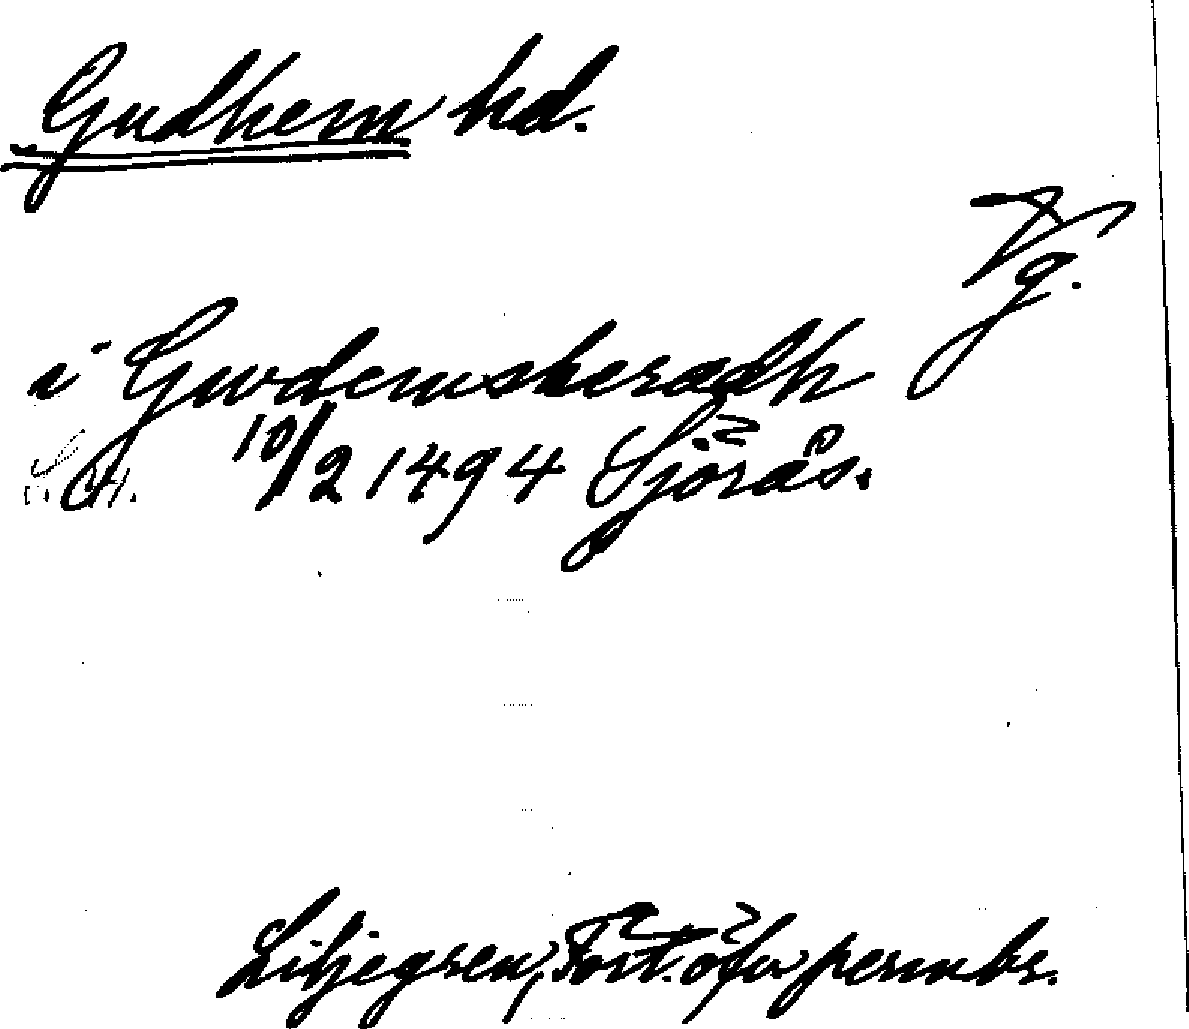 Gudhem hd.
Vg.
i Gwdemsheradh
10/2 1494 Sjörås.
Liljegren, Fört. öfver permbr.